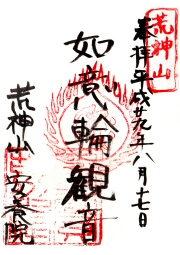 荒神山
奉拝 平成廿九年八月十七日
如意輪観音
荒神山 安養院